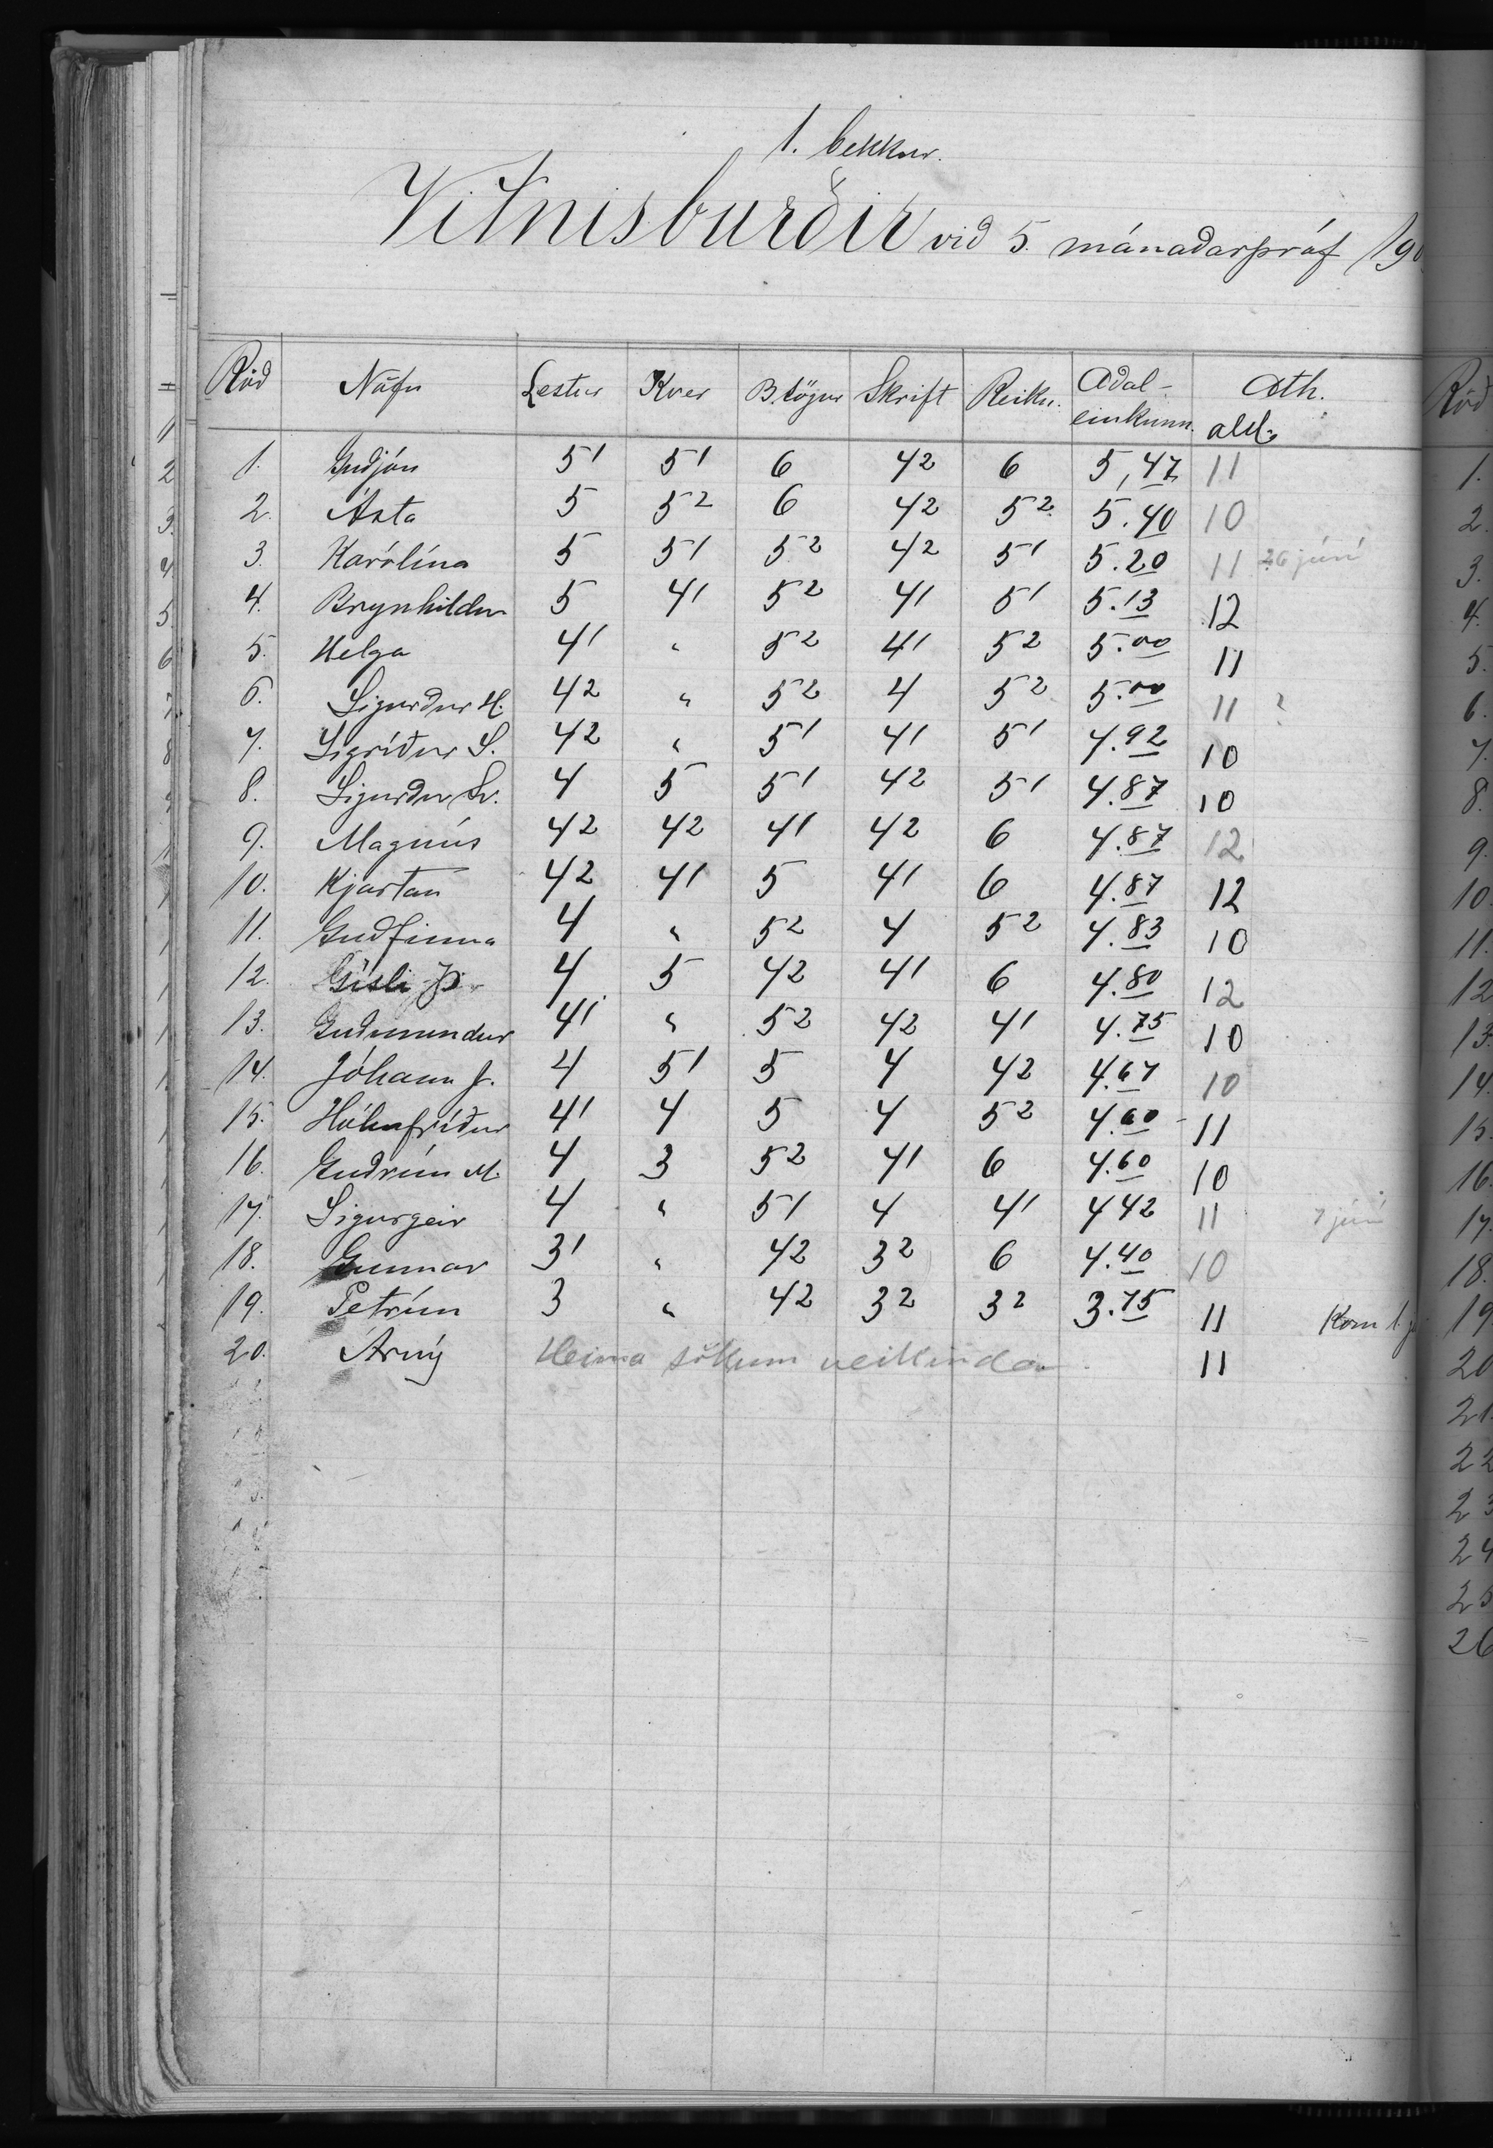 1. bekkur.
Vitnisburðir við 5. mánaðarpróf 190
Röð Nöfn Lestur Kver B.sögur Skrift Reikn. Aðal-einkunn. Ath. ald.
1. Guðjón 5 1 5 1 6 4 2 6 5,47 11
2. Ásta 5 5 2 6 4 2 5 2 5.40 10
3. Karólína 5 5 1 5 2 4 2 5 1 5.20 11 26 júní
4. Brynhildur 5 4 1 5 2 4 1 5 1 5.13 12
5. Helga 4 1 " 5 2 4 1 5 2 5.00 11
6. Sigurður H. 4 2 " 5 2 4 5 2 5.00 11 ?
7. Sigríður S. 4 2 " 5 1 4 1 5 1 4.92 10
8. Sigurður Sv. 4 5 5 1 4 2 5 1 4.87 10
9. Magnús 4 2 4 2 4 1 4 2 6 4.87 12
10. Kjartan 4 2 4 1 5 4 1 6 4.87 12
11. Guðfinna 4 " 5 2 4 5 2 4.83 10
12. Gísli Þ. 4 5 4 2 4 1 6 4.80 12
13. Guðmundur 4 1 " 5 2 4 2 4 1 4.75 10
14. Jóhann J. 4 5 1 5 4 4 2 4.67 10
15. Hólmfríður 4 1 4 5 4 5 2 4.60 11
16. Guðrún M. 4 3 5 2 4 1 6 4.60 10
17. Sigurgeir 4 " 5 1 4 4 1 4 42 11 7 júní
18. Gunnar 3 1 " 4 2 3 2 6 4.40 10
19. Petrún 3 " 4 2 3 2 3 2 3.75 11 Kom 1. j
20. Árný Heima sökum veikinda 11